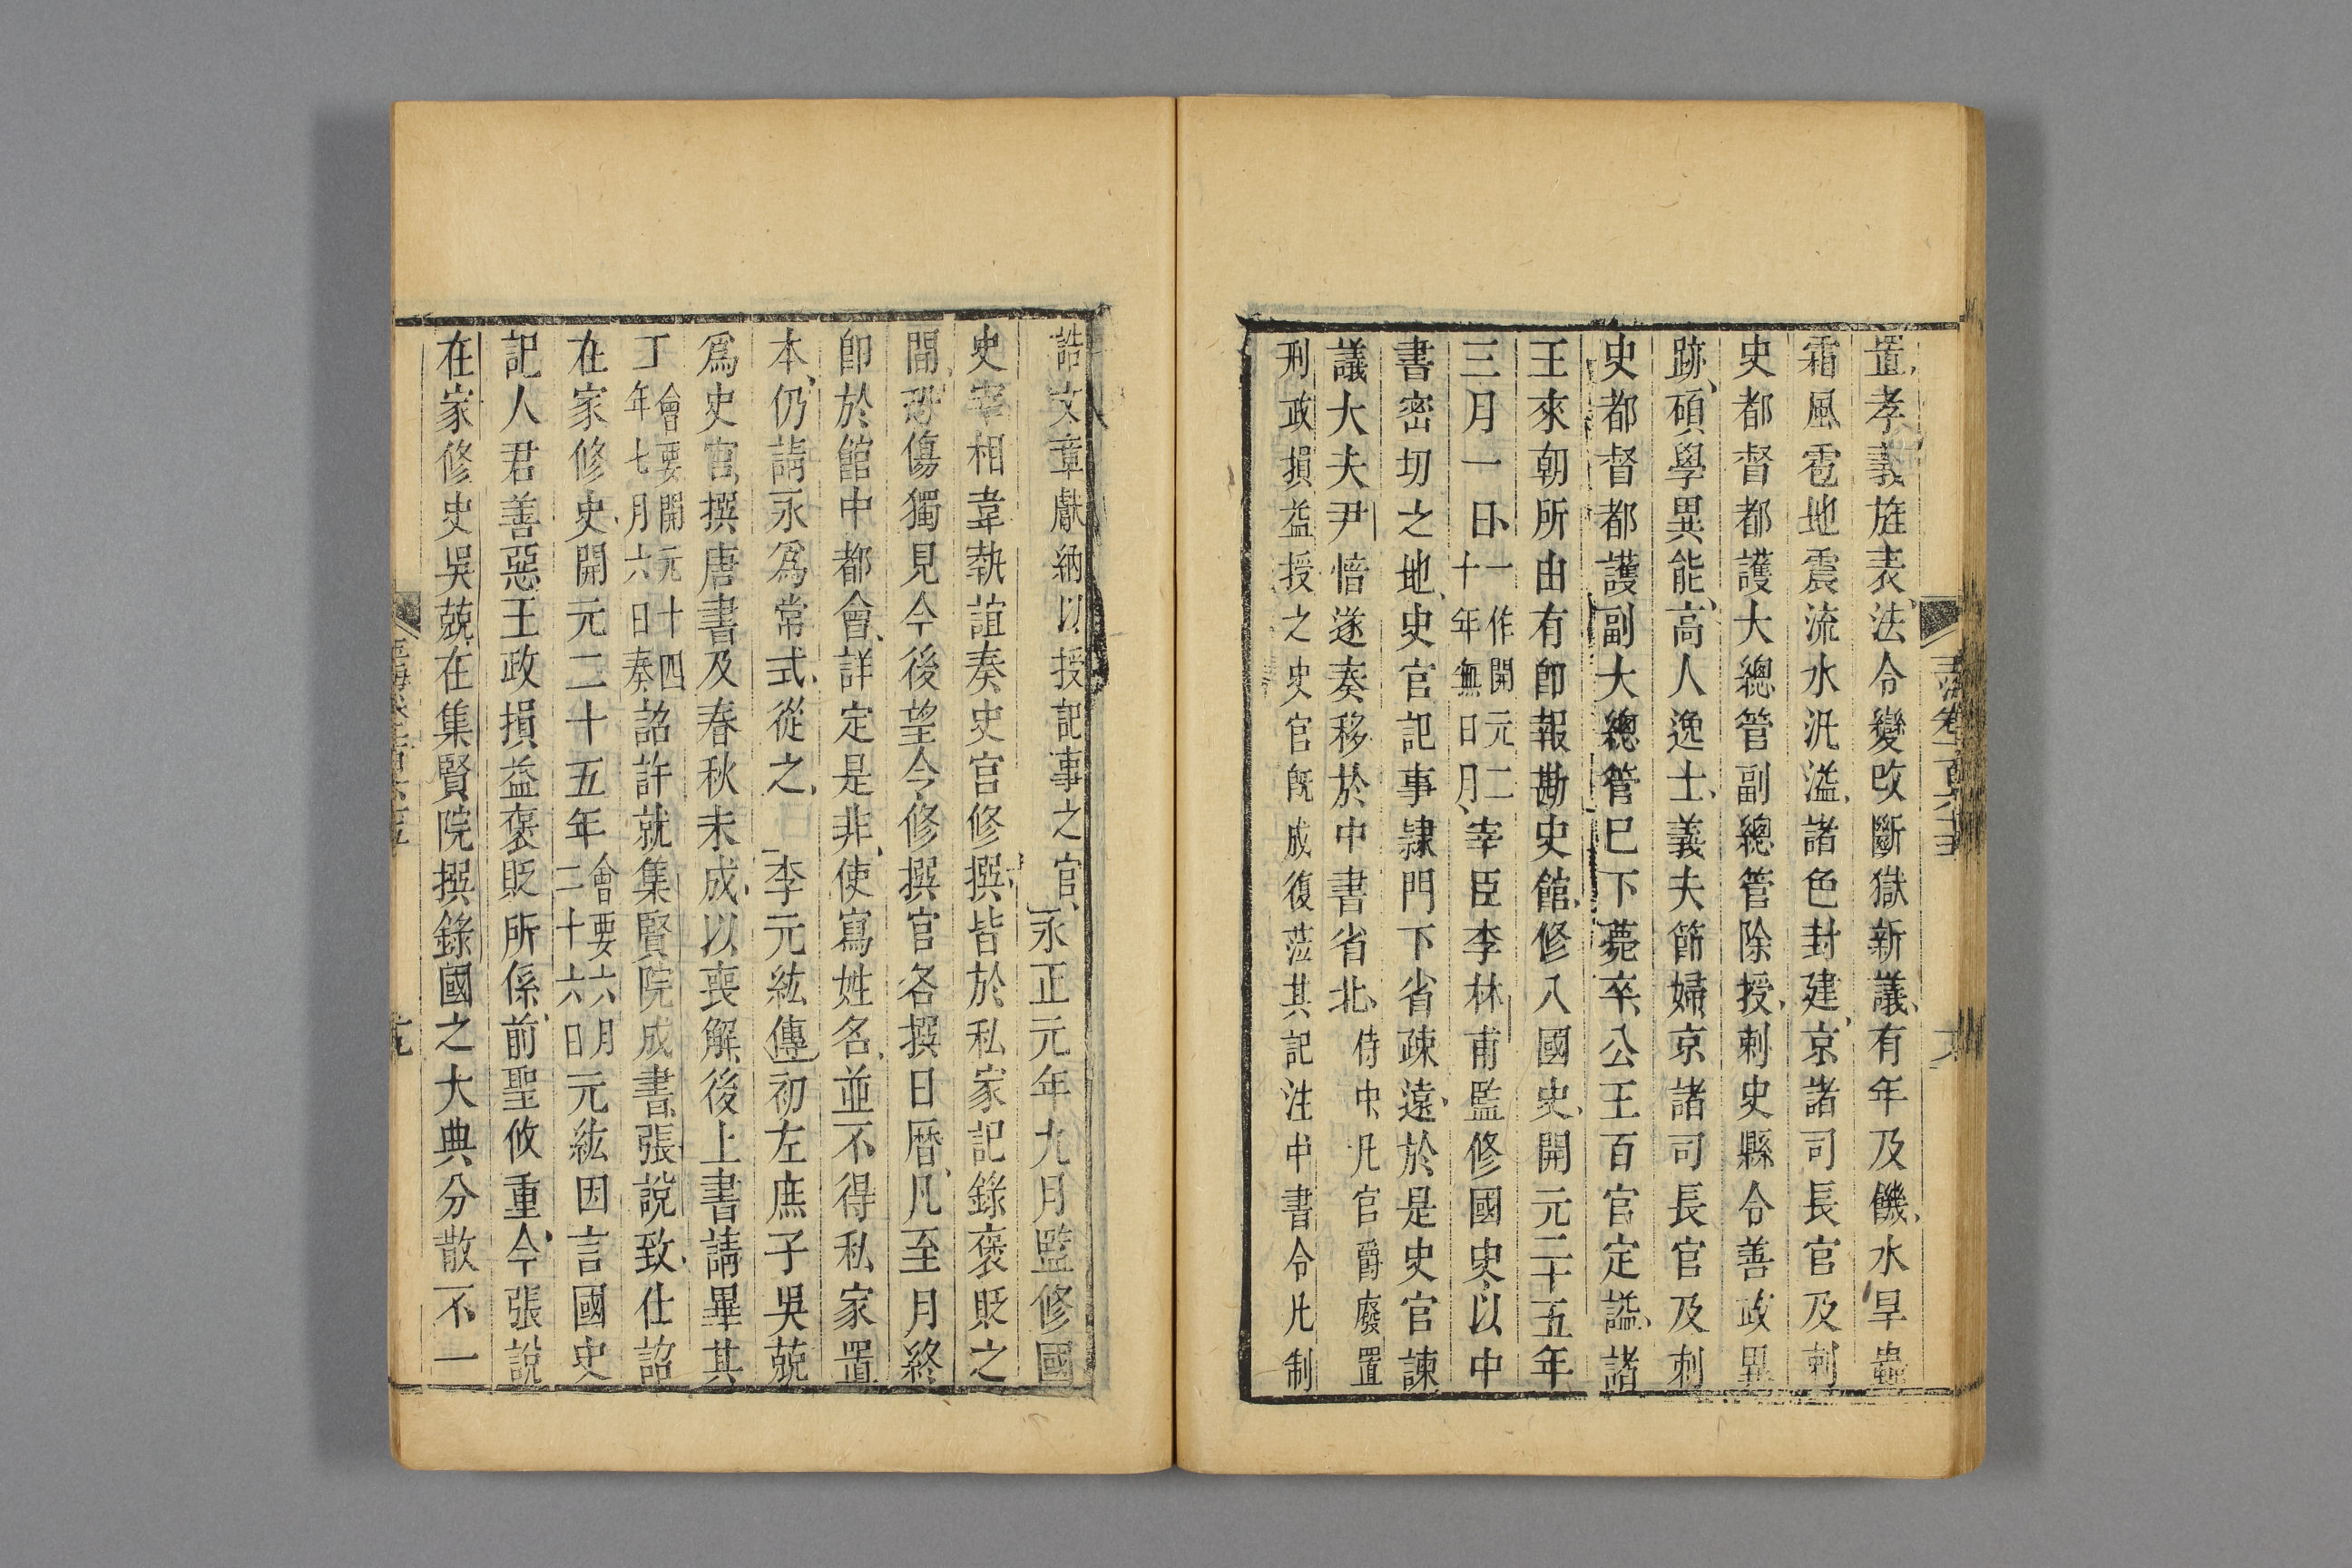 置孝義旌表法令變改斷獄新議有年及饑水旱蟲
霜風雹地震流水汎溢諸色封建京諸司長官及刺
史都督都護大總管副總管除授刺史縣令善政異
跡碩學異能高人逸士義夫節婦京諸司長官及刺
史都督都護副大總管已下薨卒公王百官定諡諸
王來朝所由有卽報勘史館修入國史開元二十五年
三月一日一作開元二十年無日月宰臣李林甫監修國史以中
書密切之地史官記事隷門下省疎遠於是史官諫
議大夫尹愔遂奏移於中書省北侍中凡官爵廢置
刑政損益授之史官旣成復蒞其記注中書令凡制
誥文章獻納以授記事之官永正元年九月監修國
史宰相韋執誼奏史官修撰皆於私家記錄褒貶之
間恐傷獨見今後望令修撰官各撰日曆凡至月終
卽於館中都會詳定是非使寫姓名並不得私家置
本仍請永爲常式從之李元紘傳初左庶子吳兢
爲史官撰唐書及春秋未成以喪解後上書請畢其
丁會要開元十四年七月六日奏詔許就集賢院成書張說致仕詔
在家修史開元二十五年會要六月二十六日元紘因言國史
記人君善惡王政損益褒貶所係前聖攸重今張說
在家修史吳兢在集賢院撰錄國之大典分散不一